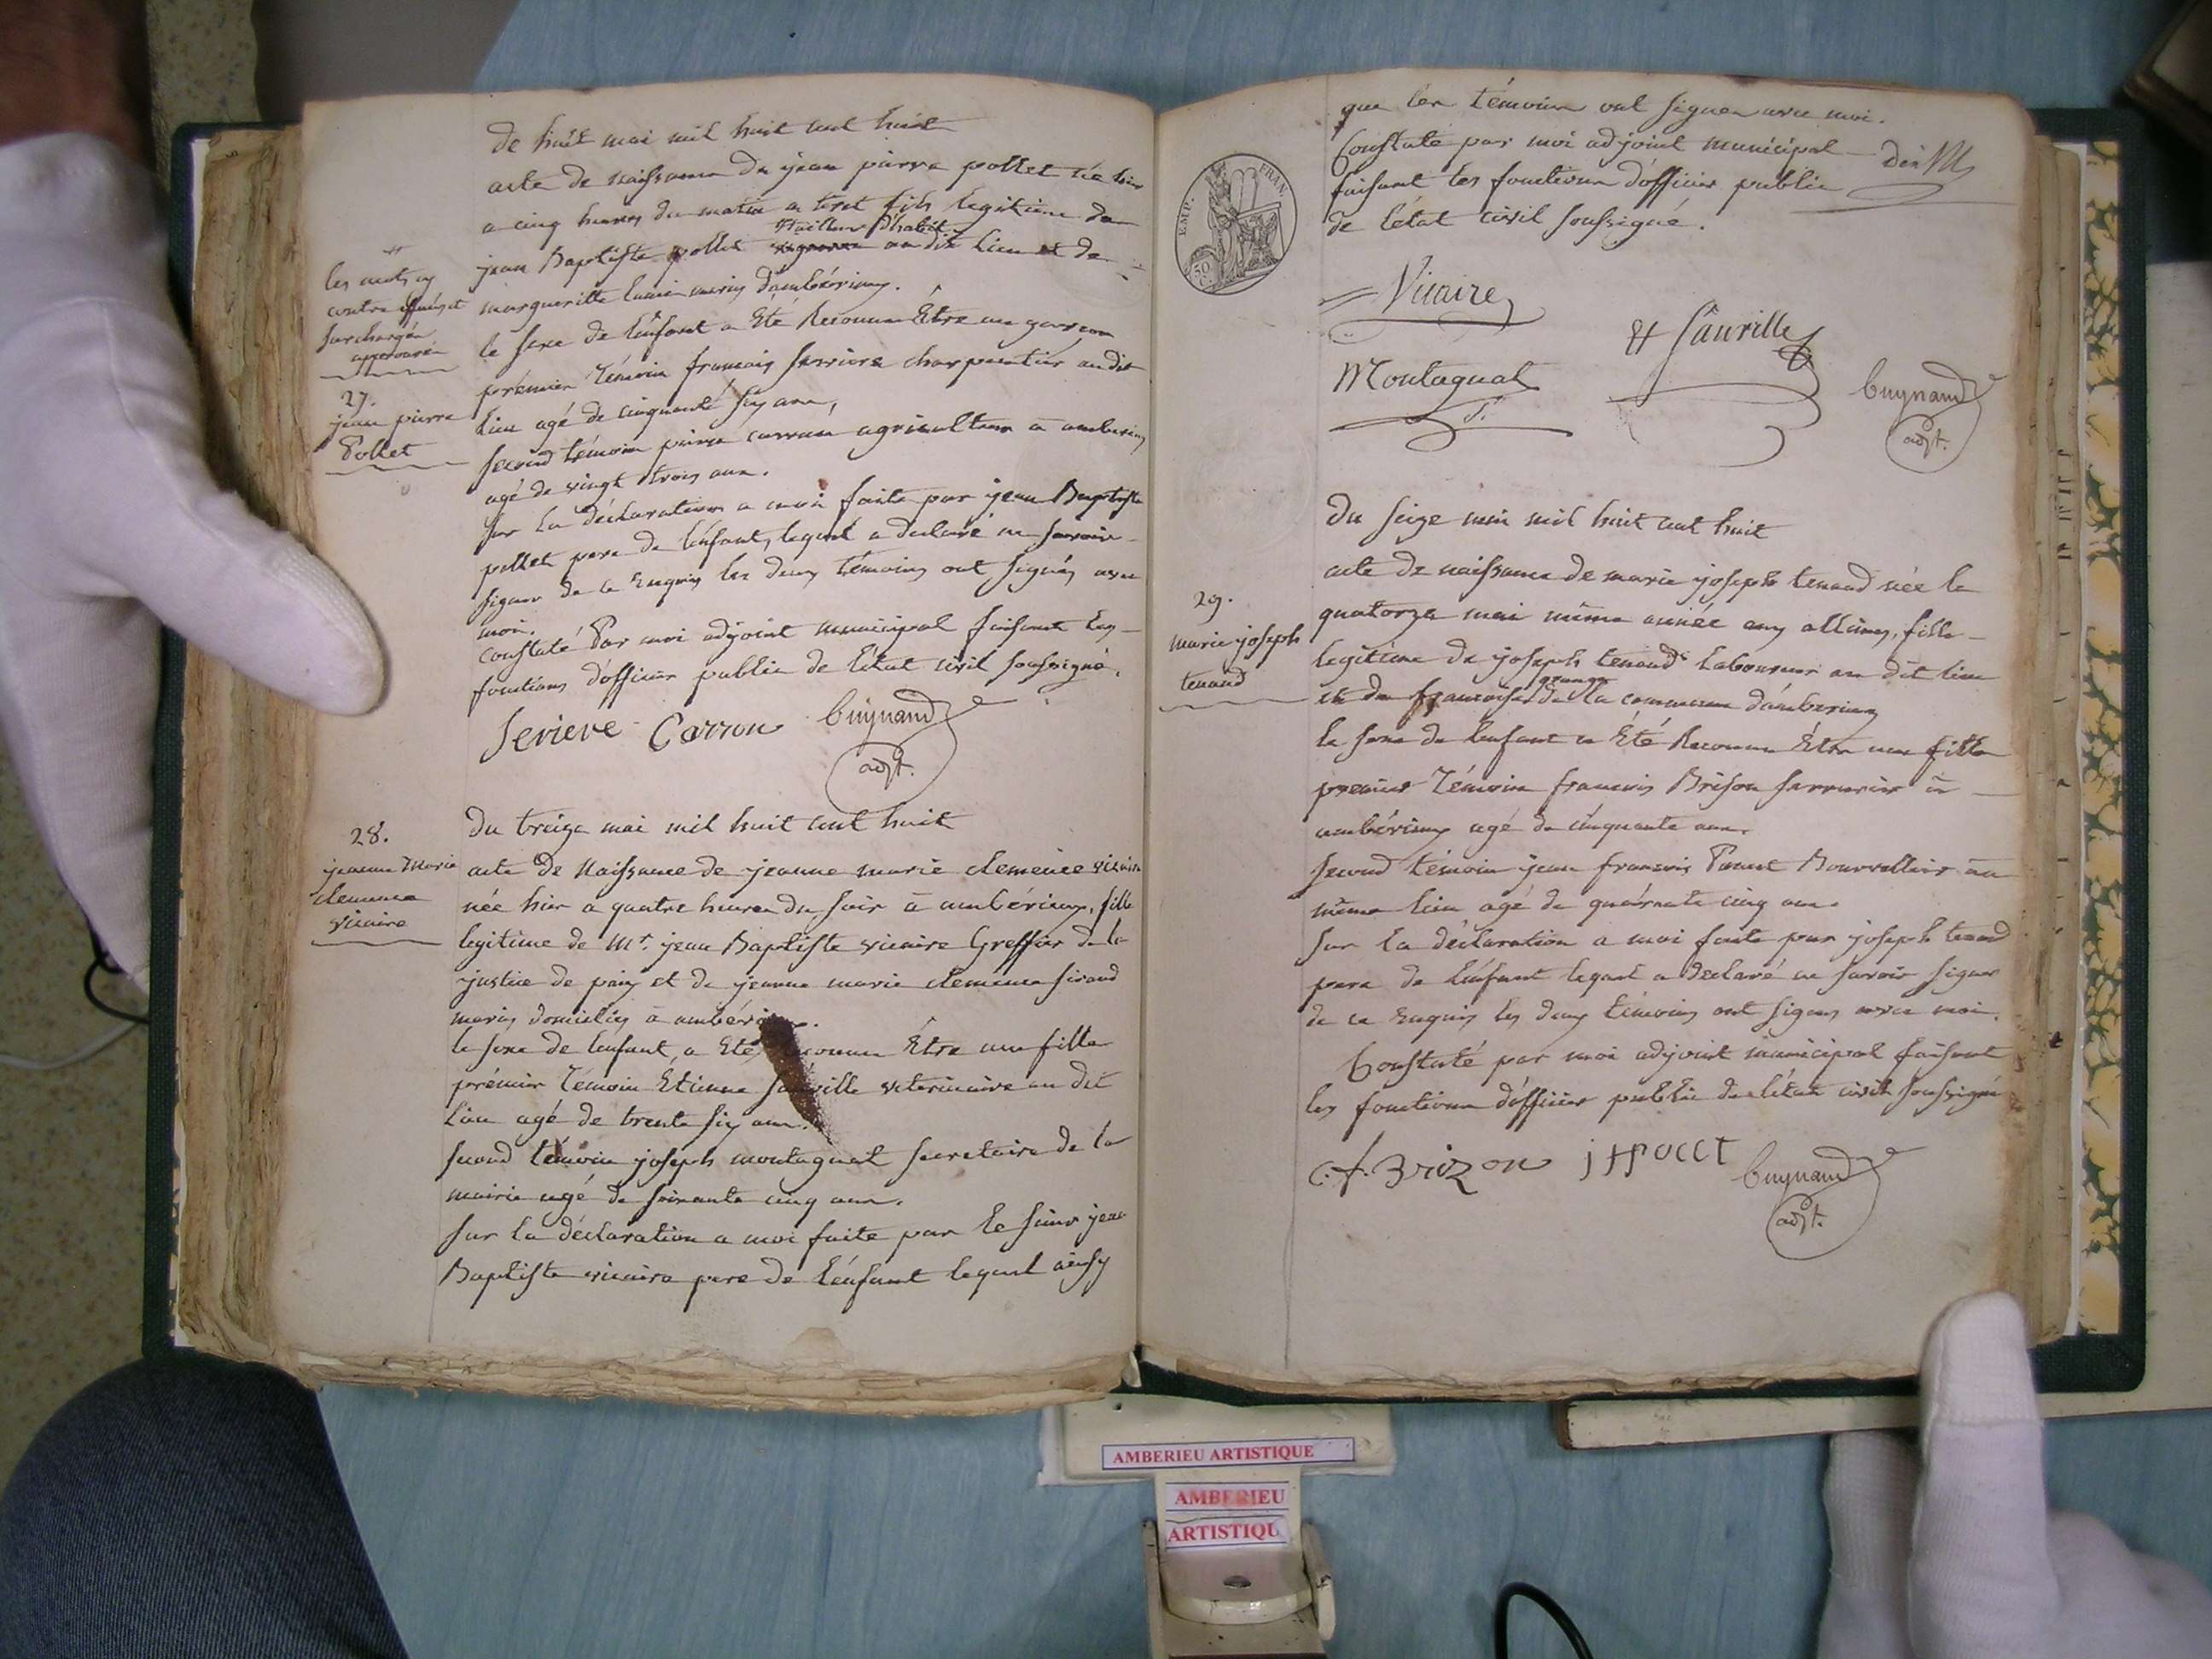 de huit mai mil huit cent huit
acte de naissance de jean pierre pollet né hier
a cinq heures du matin a tiret fils legitime de
jean Baptiste pollet tailleur d'habit au dit lieu et de
margueritte mariés d'ambérieux.
le sexe de l'enfant a Eté Reconnu Être un garcon
prémier Témoin francois serriere charpentier au dit
lieu agé de cinquante six ans,
second témoin pierre carron agriculteur a amberieux
agé de vingt trois ans.
sur la déclaration a moi faite par jean Baptiste
pollet pere de l'enfant, lequel a declaré ne savoir
signer de ce Enquis les deux témoins ont signés avec
moi.
constaté Par moi adjoint municipal faisant les
fonctions d'officier public de l'état civil soussigné.
Seriere Carron Guynand
adjt.
les mots cy
contre
surchargés
approuvés
27.
jean pierre
Pollet
28.
jeanne Marie
clemence
vicaire
du treize mai mil huit cent huit
acte de Naissance de jeanne marie clemence vicaire
née hier a quatre heures du soir à ambérieux, fille
legitime de Mr. jean Baptiste vicaire Greffier de la
justice de paix et de jeanne marie clemence sirand
mariés domiciliés à
le sexe de lenfant, a Eté Reconnu Être une fille
prémier Témoin Etienne Sauville veterinaire au dit
lieu agé de trente six ans.
second témoin joseph montagnat secretaire de la
mairie agé de soixante cinq ans.
sur la déclaration a moi faite par le sieur jean
Baptiste vicaire pere de l'enfant lequel ainsy
que les témoins ont signer avec moi.
Constaté par moi adjoint municipal
faisant les fonctions d'officier public
de l'état civil soussigné.
EMP. FRAN.
50 C.
Vicaire
Et Sauville
Montagnat
Guynand
adjt.
29.
marie joseph
tenand
du seize mai mil huit cent huit
acte de naissance de marie joseph tenand née le
quatorze mai même année aux allimes, fille
legitime de joseph tenand laboureur au dit lieu
et de francoise grange de la commune d'amberieux
le sexe de lenfant a Été Reconnu Être une fille
premier Témoin francois Brison serrurier à
ambérieux agé de cinquante ans.
second témoin jean francois Pocect Bourrellier au
même lieu agé de quarante cinq ans.
sur la déclaration a moi faite par joseph tenand
pere de l'enfant lequel a declaré ne savoir signer
de ce Enquis les deux témoins ont signés avec moi.
Constaté par moi adjoint municipal faisant
les fonctions d'officier public de l'état civil soussigné
C. f. Brizon
Guynand
adjt.
AMBERIEU ARTISTIQUE
AMBERIEU
ARTISTIQU